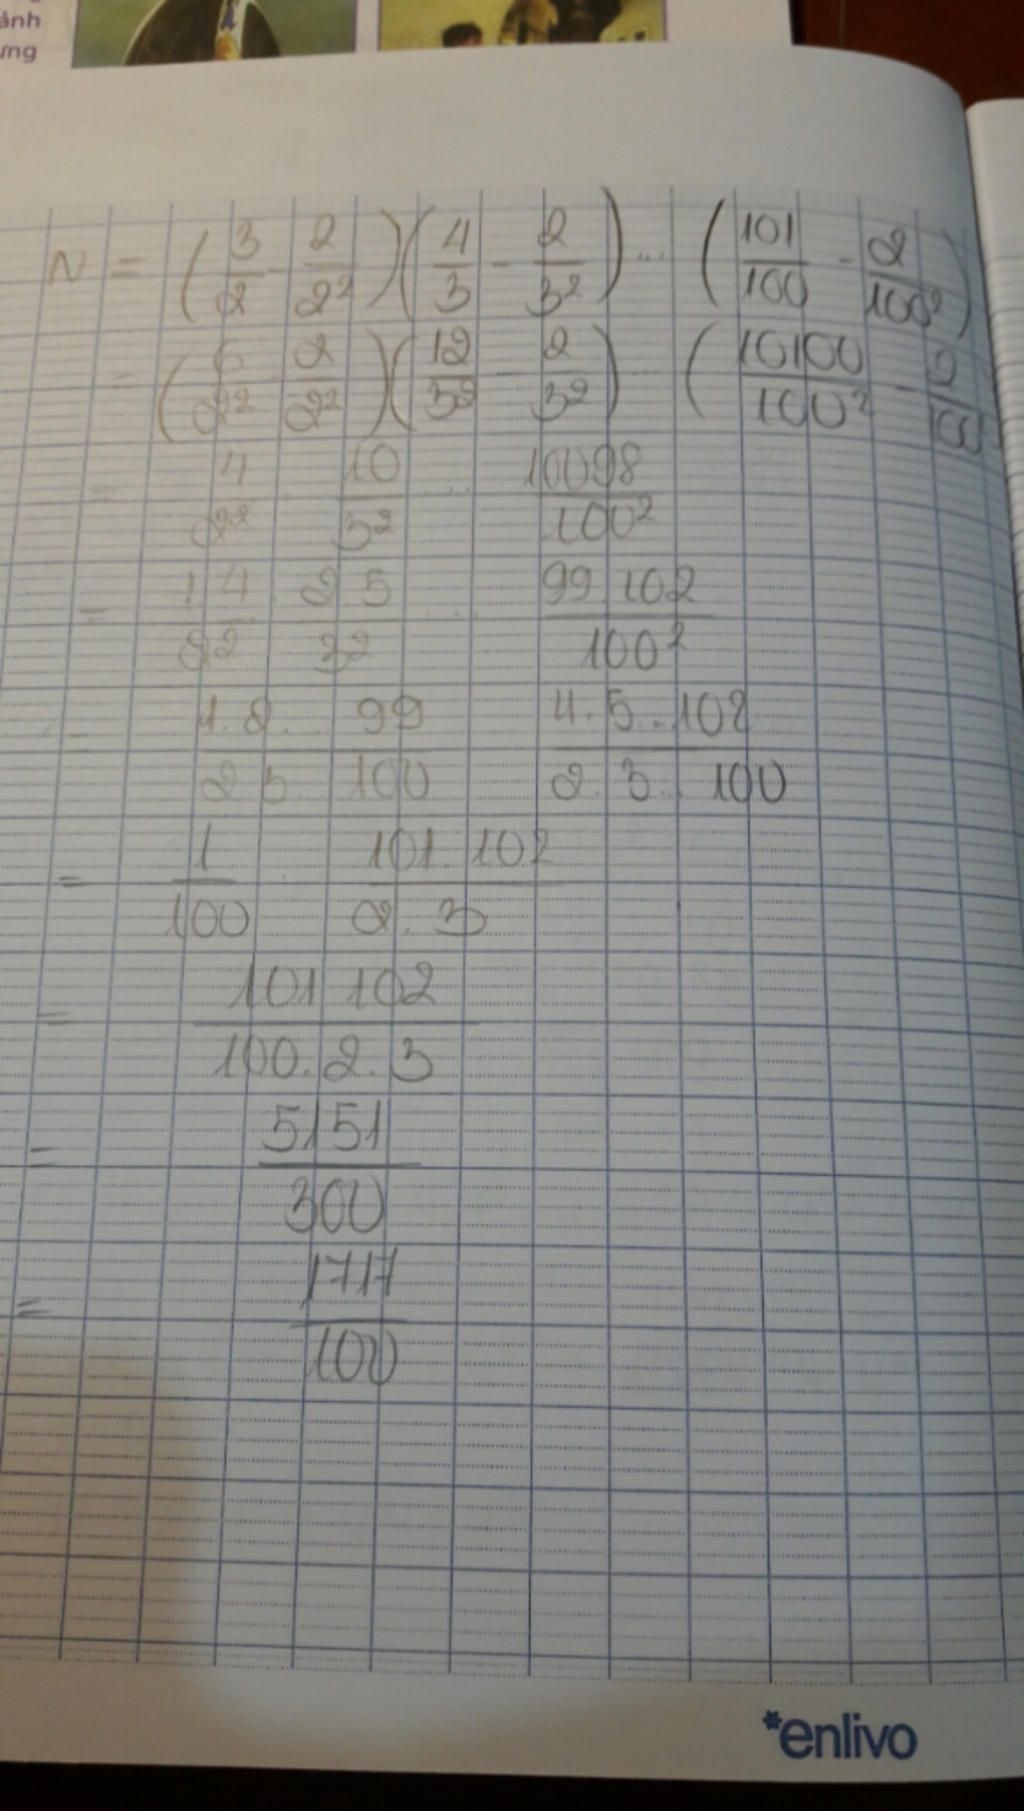 ảnh
ứng
N = (3/2 - 2/2²)(4/3 - 2/3²)...(101/100 - 2/100²)
= (6/2² - 2/2²)(12/3² - 2/3²)...(10100/100² - 2/100
= 4/2² . 10/3² ... 10098/100²
= 1.4/2² . 2.5/3² ... 99.102/100²
= 1.2. 99/2.3. 100 4.5..102/2.3. 100
= 1/100 . 101.102/2.3
= 101.102/100.2.3
= 5151/300
= 1717/100
*enlivo